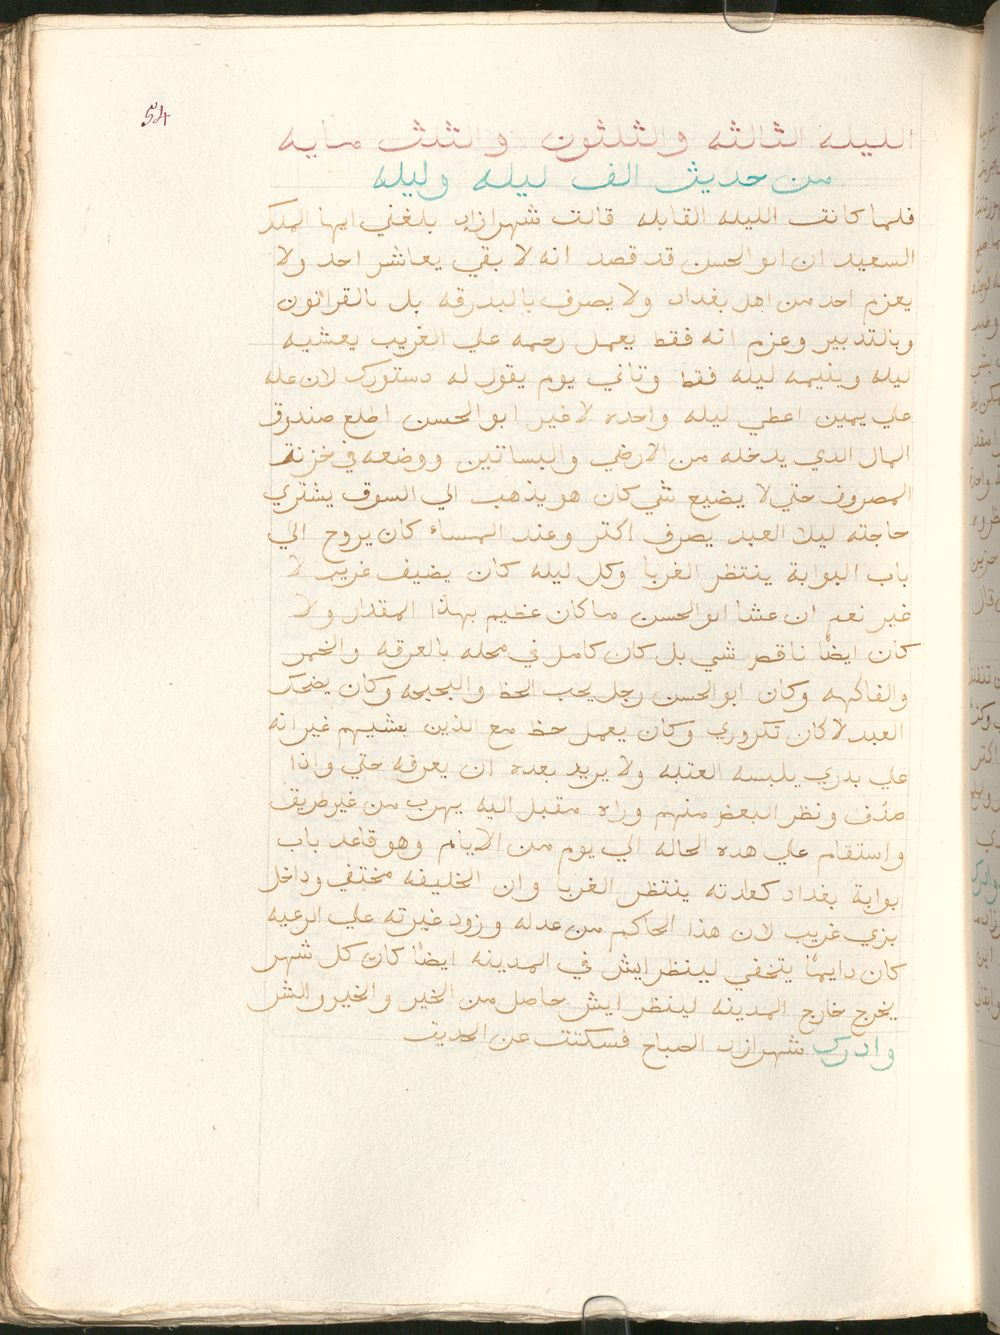 54
الليله الثالثه والثلثون والثلث مايه
من حديث الف ليله وليله
فلما كانت الليله القابله قالت شهرازاد بلغني ايها الملك
السعيد ان ابو الحسن قد قصد انه لا بقي يعاشر احد ولا
يعزم احد من اهل بغداد ولا يصرف بالبدرقه بل بالقرانون
وبالتدبير وعزم انه فقط يعمل رحمه علي الغريب يعشيه
ليله وينيمه ليله فقط وتاني يوم يقول له دستورك لان عله
علي يمين اعطي ليله واحده لاغير ابو الحسن اطلع صندوق
المال الذي يدخله من الارضي والبساتين ووضعه في خزنة
المصروف حتي لا يضيع شي كان هو يذهب الي السوق يشتري
حاجته ليلا العبد يصرف اكتر وعند المساء كان يروح الي
باب البوابة ينتظر الغربا وكل ليله كان يضيف غريب لا
غير نعم ان عشا ابو الحسن ما كان عظيم بهذا المقدار ولا
كان ايضًا ناقص شي بل كان كامل في محله بالعرقه والخمر
والفاكهه وكان ابو الحسن رجل يحب الحظ والبجبحه وكان يضحك
العبد لا كان تكروري وكان يعمل حظ مع الذين يعشيهم غير انه
علي بدري يلبسه العتبه ولا يريد بعده ان يعرفه حتي واذا
صدف ونظر البعض منهم وراه مقبل اليه يهرب من غير طريق
واستقام علي هده الحاله الي يوم من الايام وهو قاعد باب
بوابة بغداد كعادته ينتظر الغربا وان الخليفه مختفي وداخل
بزي غريب لان هذا الحاكم من عدله وزود غيرته علي الرعيه
كان دايمًا يتخفي لينظر ايش في المدينه ايضًا كان كل شهر
يخرج خارج المدينه لينظر ايش حاصل من الخير والخير والشر
وادرك شهرازاد الصباح فسكتت عن الحديث